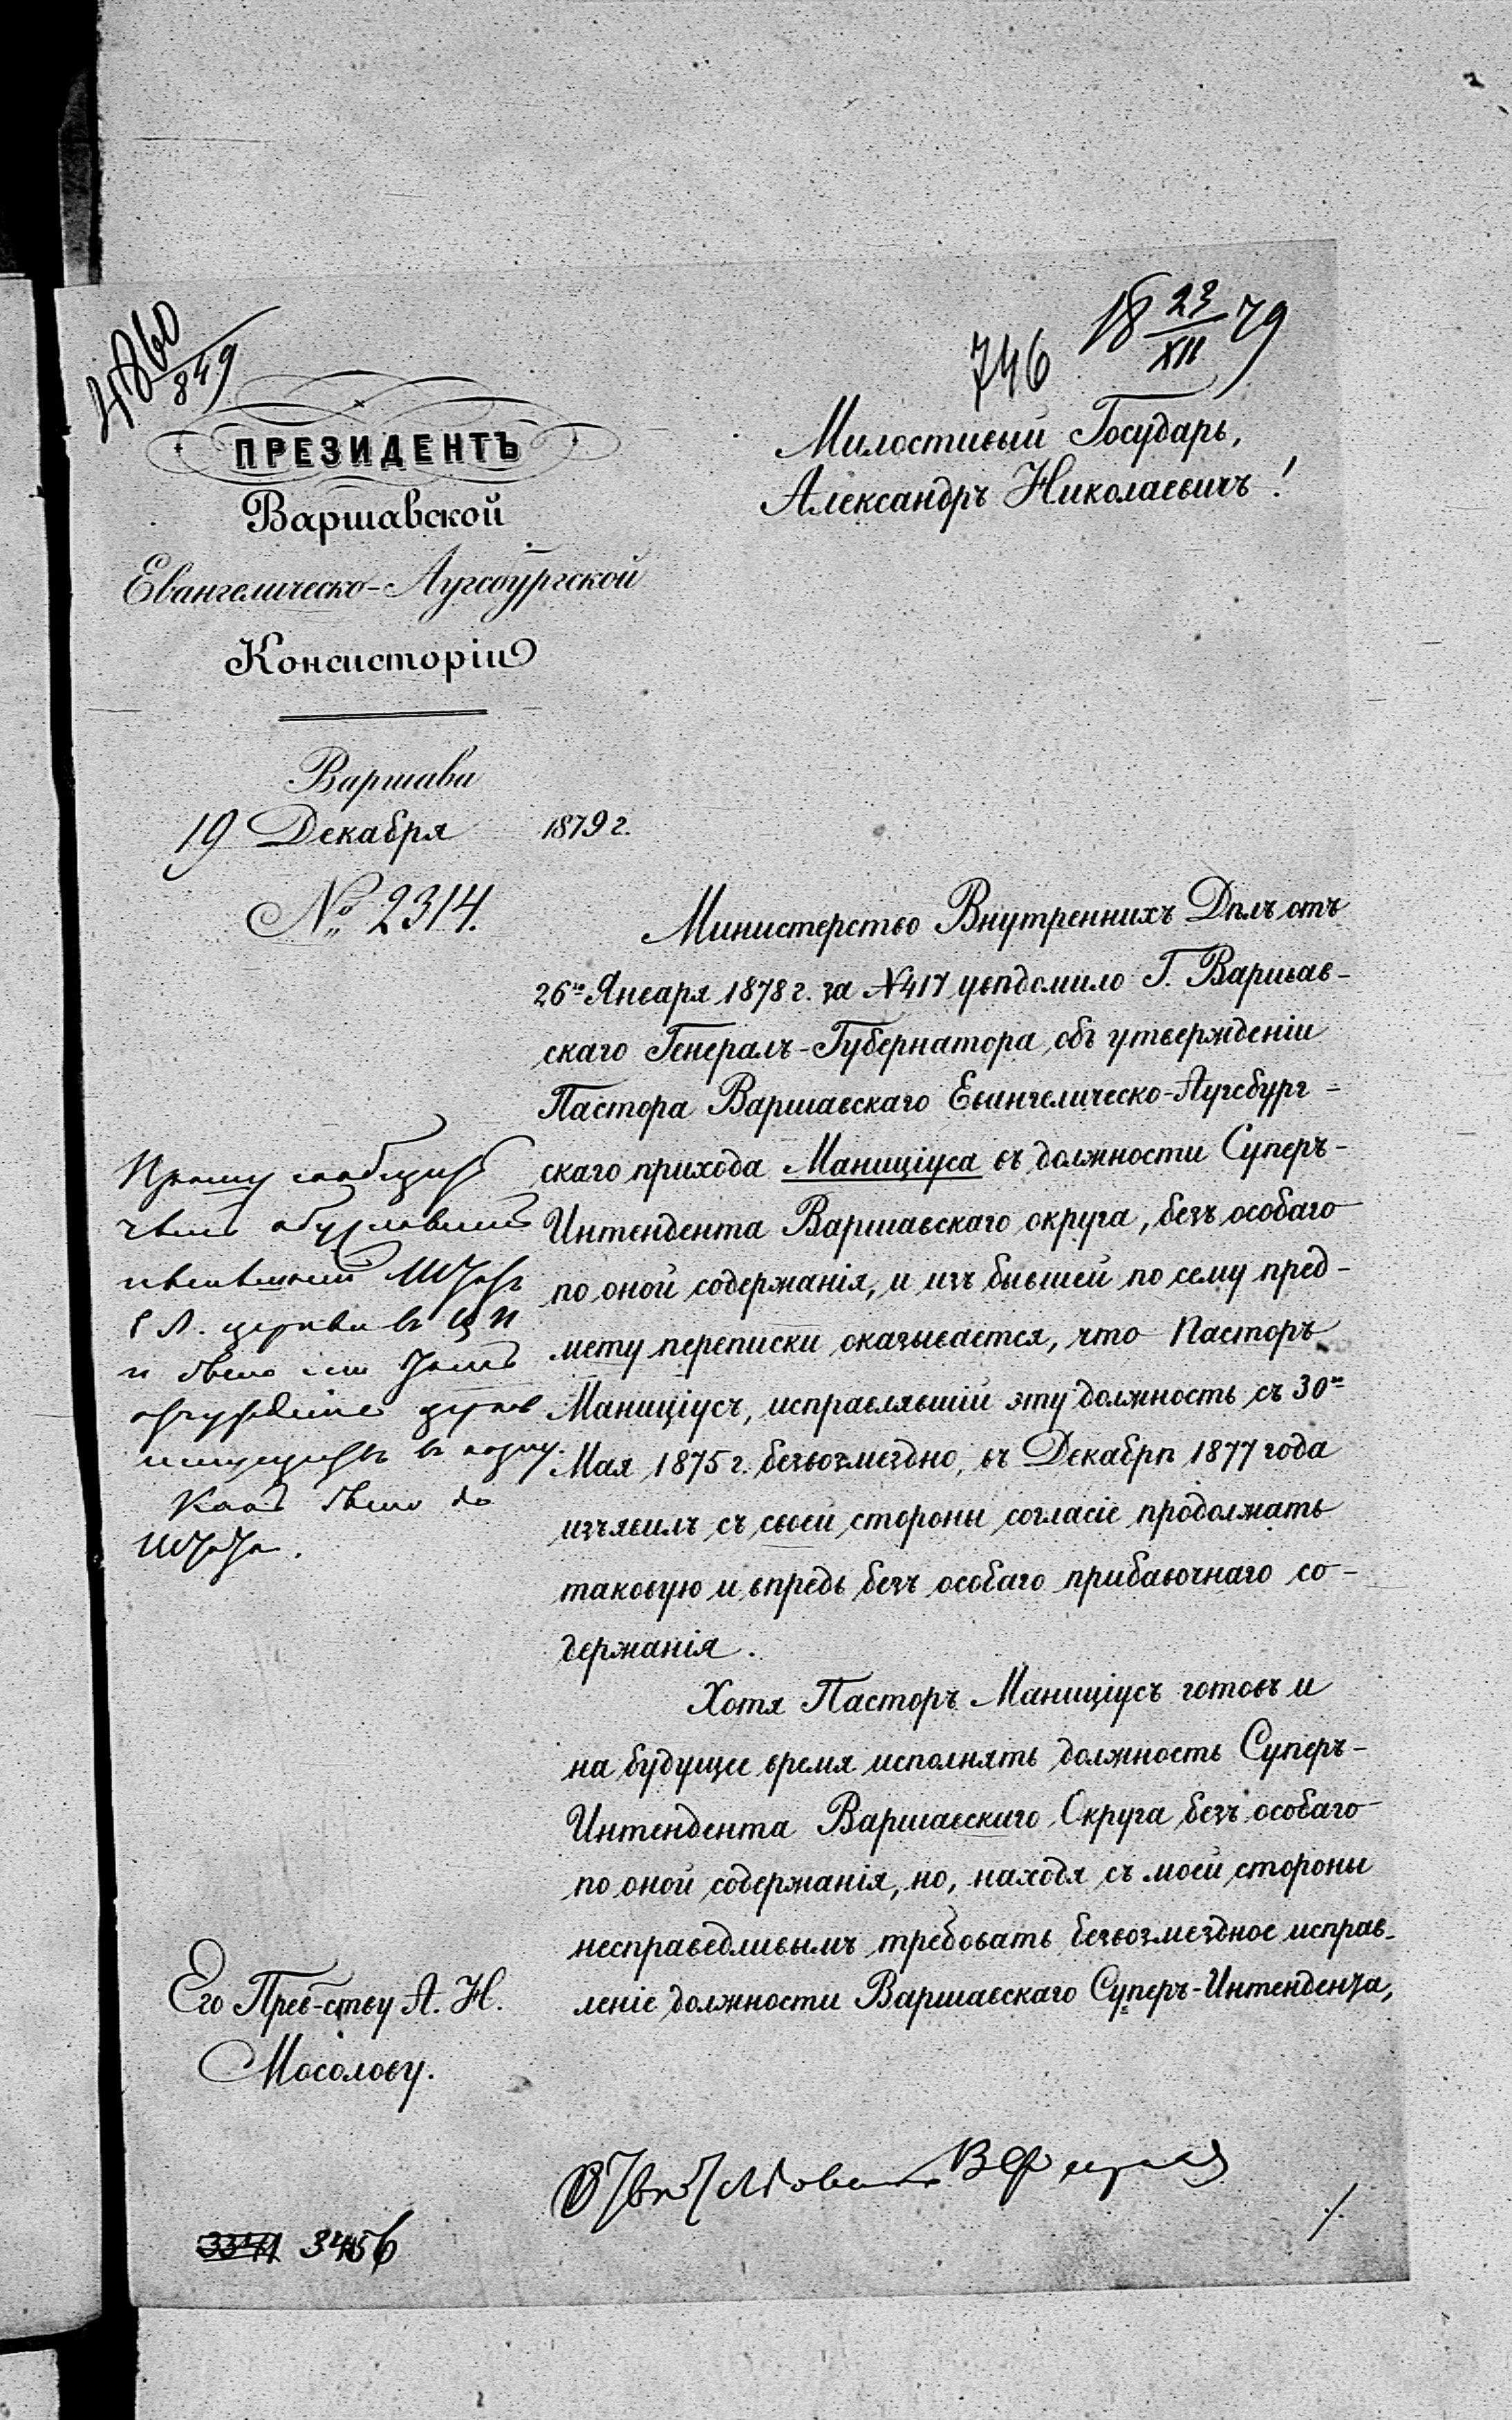 4860
849
746
18 23/XII 79
ПРЕЗИДЕНТЪ
Варшавской
Евангелическо-Аугсбургской
Консисторіи
Варшава
19 Декабря 1879 г.
№ 2314.
Милостивый Государь,
Александръ Николаевичъ!
Министерство Внутреннихъ Дѣлъ отъ
26го Января 1878 г. за №417 увѣдомило Г. Варшав-
скаго Генералъ-Губернатора, объ утвержденіи
Пастора Варшавскаго Евангелическо-Аугсбург=
скаго прихода Маниціуса въ должности Суперъ-
Интендента Варшавскаго округа, безъ особаго
по оной содержанія, и изъ бывшей по сему пред-
мету переписки оказывается, что Пасторъ
Маниціусъ, исправлявшій эту должность съ 30го
Мая 1875 г. безвозмездно, въ Декабрѣ 1877 года
изъявилъ съ своей стороны согласіе продолжать
таковую и впредь безъ особаго прибавочнаго со-
держанія.
Хотя Пасторъ Маниціусъ готовъ и
на будущее время исполнять должность Суперъ-
Интендента Варшавскаго Округа безъ особаго
по оной содержанія, но, находя съ моей стороны
несправедливымъ требовать безвозмездное исправ-
леніе должности Варшавскаго Суперъ-Интендента,
Прошу сообщить
чѣмъ
церкви въ ЦП
и было
Какъ было до
Его Прев-ству А. Н.
Мосолову.
3456